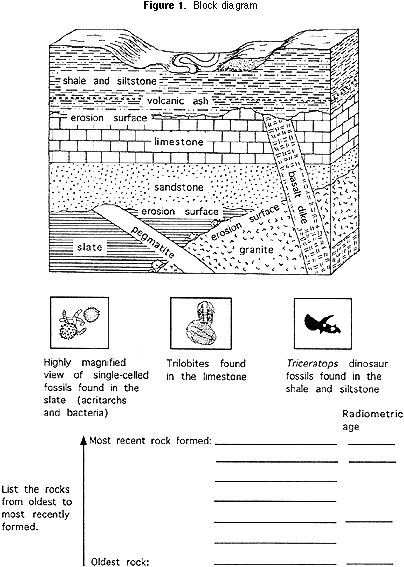 Figure 1. Block diagram
shale and siltstone
volcanic ash
erosion surface
limestone
basalt dike
sandstone
erosion surface
erosion surface
pegmatite
slate
granite
Highly magnified
view of single-celled
fossils found in the
slate (acritarchs
and bacteria)
Trilobites found
in the limestone
Triceratops dinosaur
fossils found in the
shale and siltstone
Radiometric
age
Most recent rock formed:
List the rocks
from oldest to
most recently
formed.
Oldest rock: